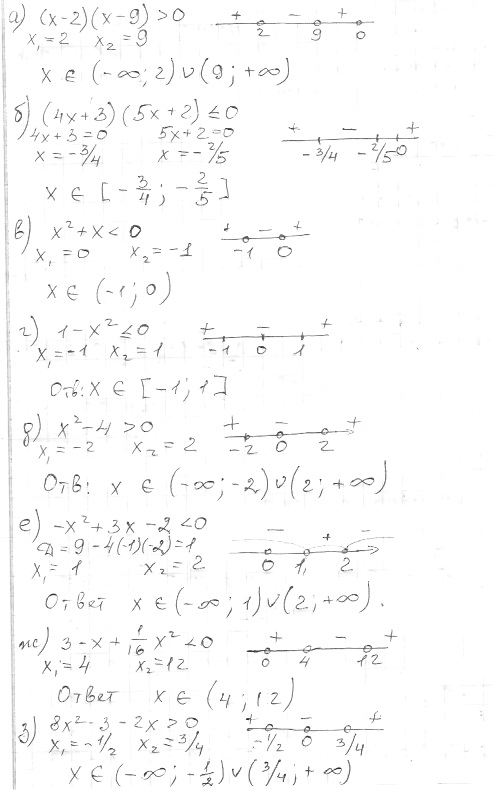 а) (x-2)(x-9) >0
x₁=2 x₂=9
+ − +
2 9 0
x ∈ (-∞; 2) ∪ (9; +∞)
б) (4x+3)(5x+2) ≤0
4x+3=0 5x+2=0
x = -3/4 x = -2/5
+ − +
-3/4 -2/5 0
x ∈ [-3/4; -2/5]
в) x²+x < 0
x₁=0 x₂=-1
+ − +
-1 0
x ∈ (-1; 0)
г) 1-x² ≤0
x₁=-1 x₂=1
+ − +
-1 0 1
Отв: x ∈ [-1; 1]
д) x²-4 >0
x₁=-2 x₂=2
+ − +
-2 0 2
Отв: x ∈ (-∞; -2) ∪ (2; +∞)
е) -x²+3x-2 <0
Д=9-4(-1)(-2)=1
x₁=1 x₂=2
− + −
0 1 2
Ответ x ∈ (-∞; 1) ∪ (2; +∞).
ж) 3-x+1/16 x² <0
x₁=4 x₂=12
+ − +
0 4 12
Ответ x ∈ (4; 12)
з) 8x²-3-2x >0
x₁=-1/2 x₂=3/4
+ − +
-1/2 0 3/4
x ∈ (-∞; -1/2) ∪ (3/4; +∞)